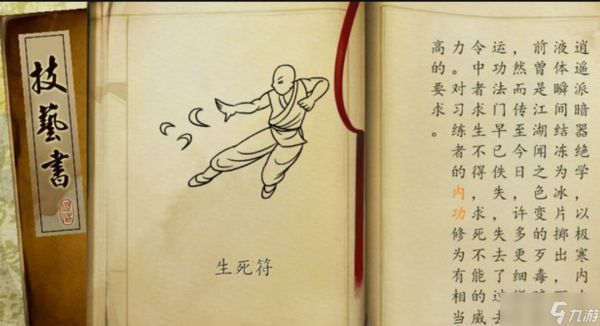 技藝書
生死符
逍遥派暗器绝学，以极寒内
液体瞬间结冻为冰片掷出，
前曾是江湖闻之色变的歹毒
，然而传至今日，许多更细
运功法门早已佚失，失去了过去
令中者求生不得，求死不能的威
力。对习练者的内功修为有相当
高的要求。
九游